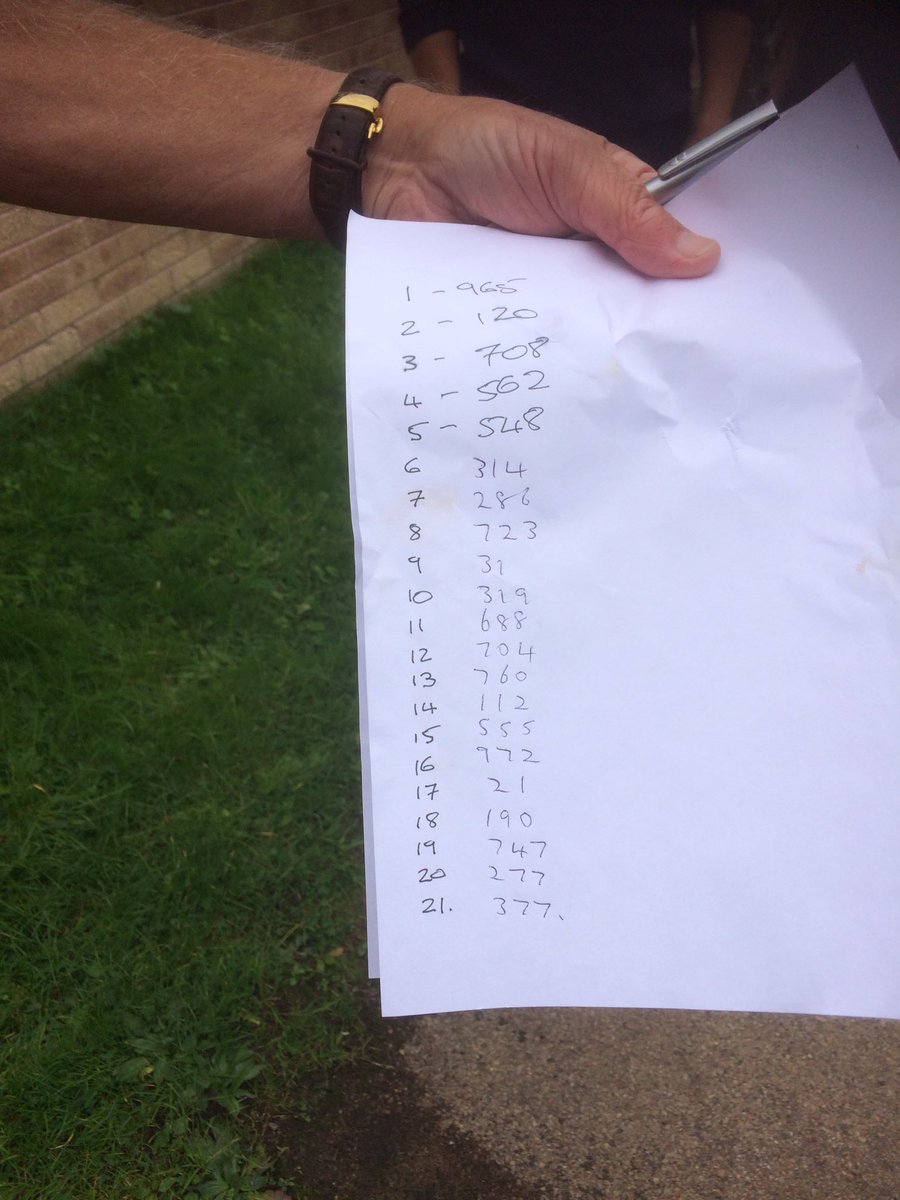 1 - 965
2 - 120
3 - 708
4 - 562
5 - 548
6 314
7 286
8 723
9 31
10 319
11 688
12 704
13 760
14 112
15 555
16 972
17 21
18 190
19 747
20 277
21. 377.